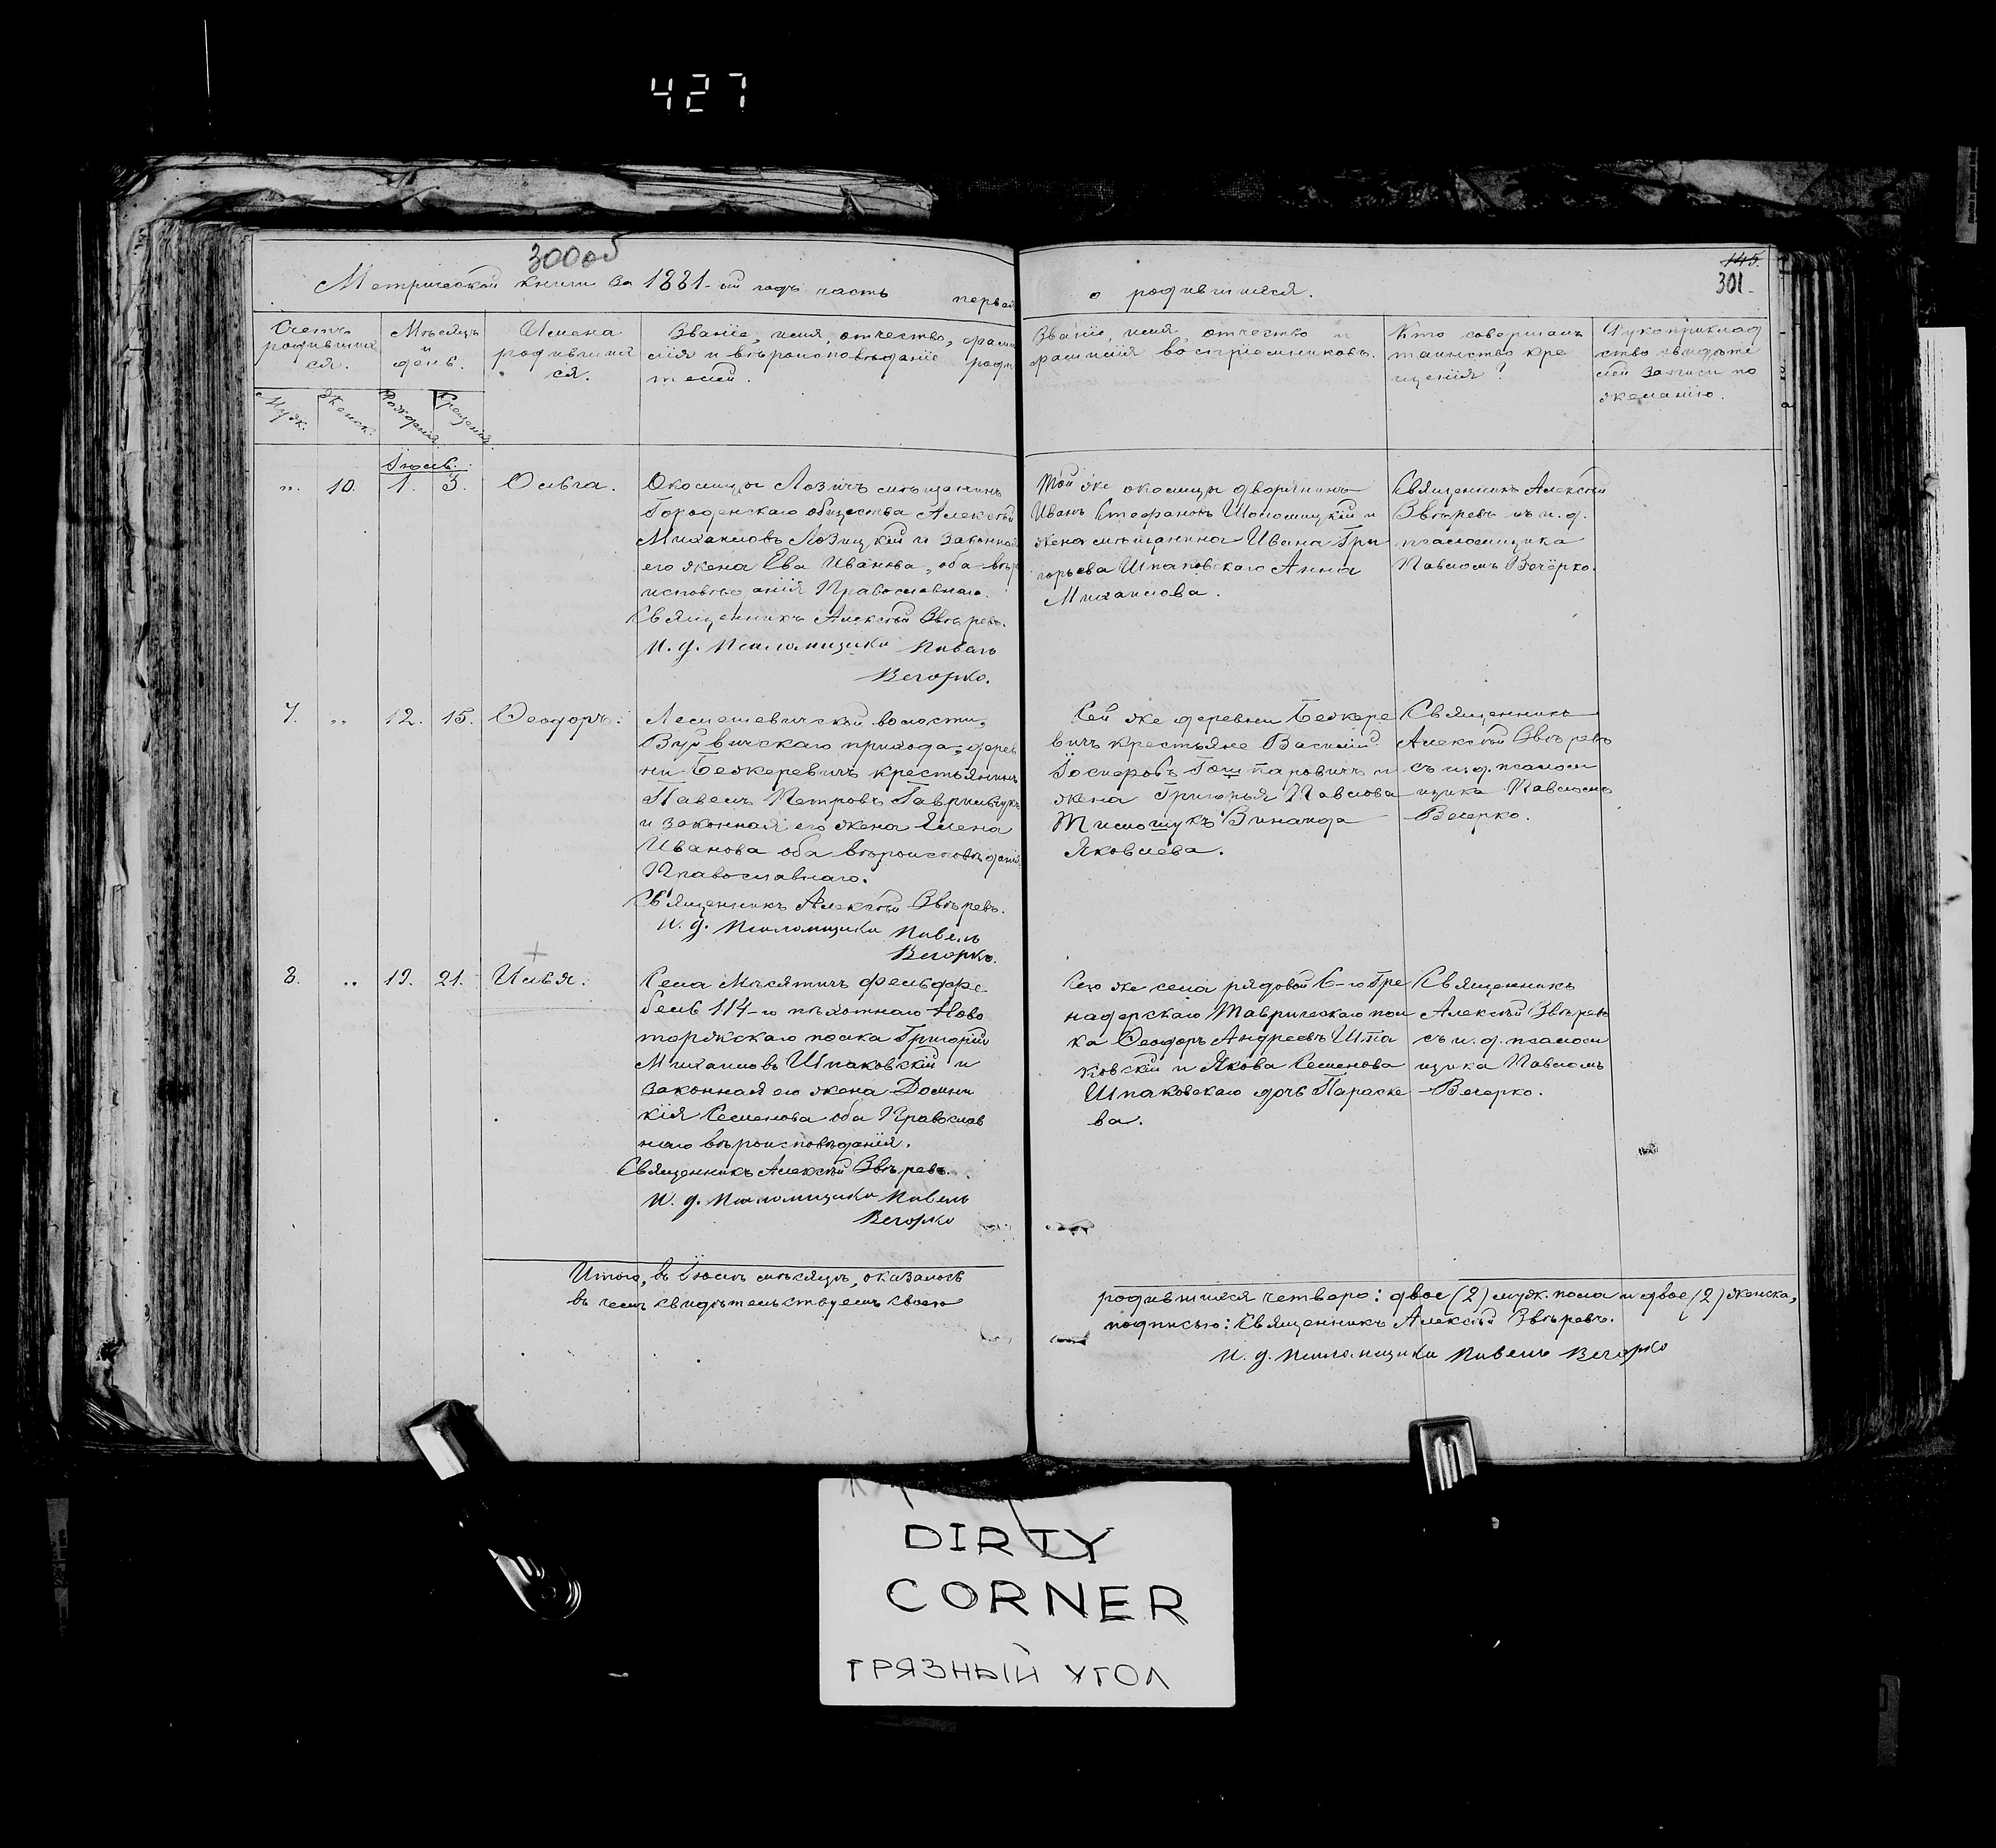 427
300 об
145.
301
Метрической книги за 1881-ый годъ часть первая о родившихся.
Счетъ родившихся.
Мѣсяцъ и день.
Имена родившихся.
Званіе, имя, отчество, фамилія и вѣроисповѣданіе родителей.
Званіе, имя, отчество и
фамилія воспріемниковъ.
Кто совершалъ
таинство кре
щенія?
Рукоприклад
ство свидѣте
лей записи по
желанію.
Муж.
Женск.
Рожденія
Крещенія
Іюль.
" 10. 1. 3. Ольга.
Околицы Лозичъ мѣщанинъ
Городенскаго общества Алексѣй
Михаиловъ Лозицкій и законная
его жена Ева Иванова, оба вѣро
исповѣданія Православнаго.
Священникъ Алексѣй Звѣревъ.
И. д. Псаломщика Павелъ
Вечорко.
Той же околицы дворянинъ
Иванъ Стефановъ Шоломицкій и
жена мѣщанина Ивана Гри
горьева Шпаковскаго Анна
Михаилова.
Священникъ Алексѣй
Звѣревъ съ и. д.
псаломщика
Павломъ Вечорко.
7. " 12. 15. Ѳеодоръ.
Лемешевичской волости,
Вуйвичскаго прихода, дерев
ни Бежеревичъ крестьянинъ
Павелъ Петровъ Гаврильчукъ
и законная его жена Елена
Иванова оба вѣроисповѣданія
Православнаго.
Священникъ Алексѣй Звѣревъ.
И. д. Псаломщика Павелъ
Вечорко.
Сей же деревни Бежере
вичъ крестьяне Василій
Іосифовъ Гошпаровичъ и
жена Григорья Павлова
Тимошукъ Зинаида
Яковлева.
Священникъ
Алексѣй Звѣревъ
съ и. д. псалом
щика Павломъ
Вечерко.
8. " 19. 21. Илья.
Села Мѣсятичъ фельдфе
бель 114-го пѣхотнаго Ново
торжскаго полка Григорій
Михаиловъ Шпаковскій и
законная его жена Домни
кія Семенова оба Православ
наго вѣроисповѣданія.
Священникъ Алексѣй Звѣревъ.
И. д. Псаломщика Павелъ
Вечорко
Сего же села рядовой 6-го Гре
надерскаго Таврическаго пол
ка Ѳеодоръ Андреевъ Шпа
ковскій и Якова Семенова
Шпаковскаго дочь Параске
ва.
Священникъ
Алексѣй Звѣревъ
съ и. д. псалом
щика Павломъ
Вечерко.
Итого, въ Іюлѣ мѣсяцѣ, оказалось родившихся четверо: двое (2) муж. пола и двое (2) женска,
въ чемъ свидѣтельствуемъ своею подписью: Священникъ Алексѣй Звѣревъ.
И. д. Псаломщика Павелъ Вечорко
DIRTY
CORNER
ГРЯЗНЫЙ УГОЛ